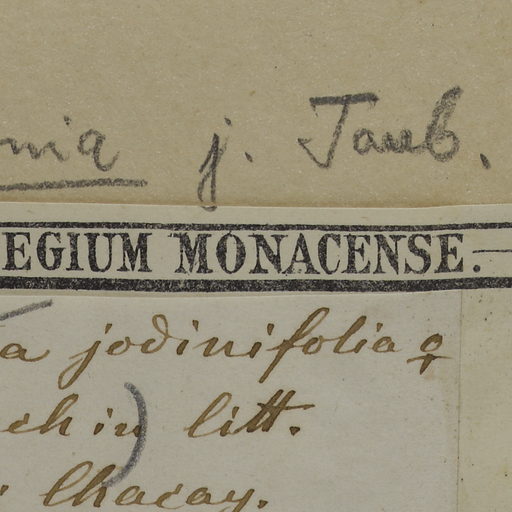 mia j. Taub.
EGIUM MONACENSE.
a jodinifolia ♀
ch in) litt.
Chacay.